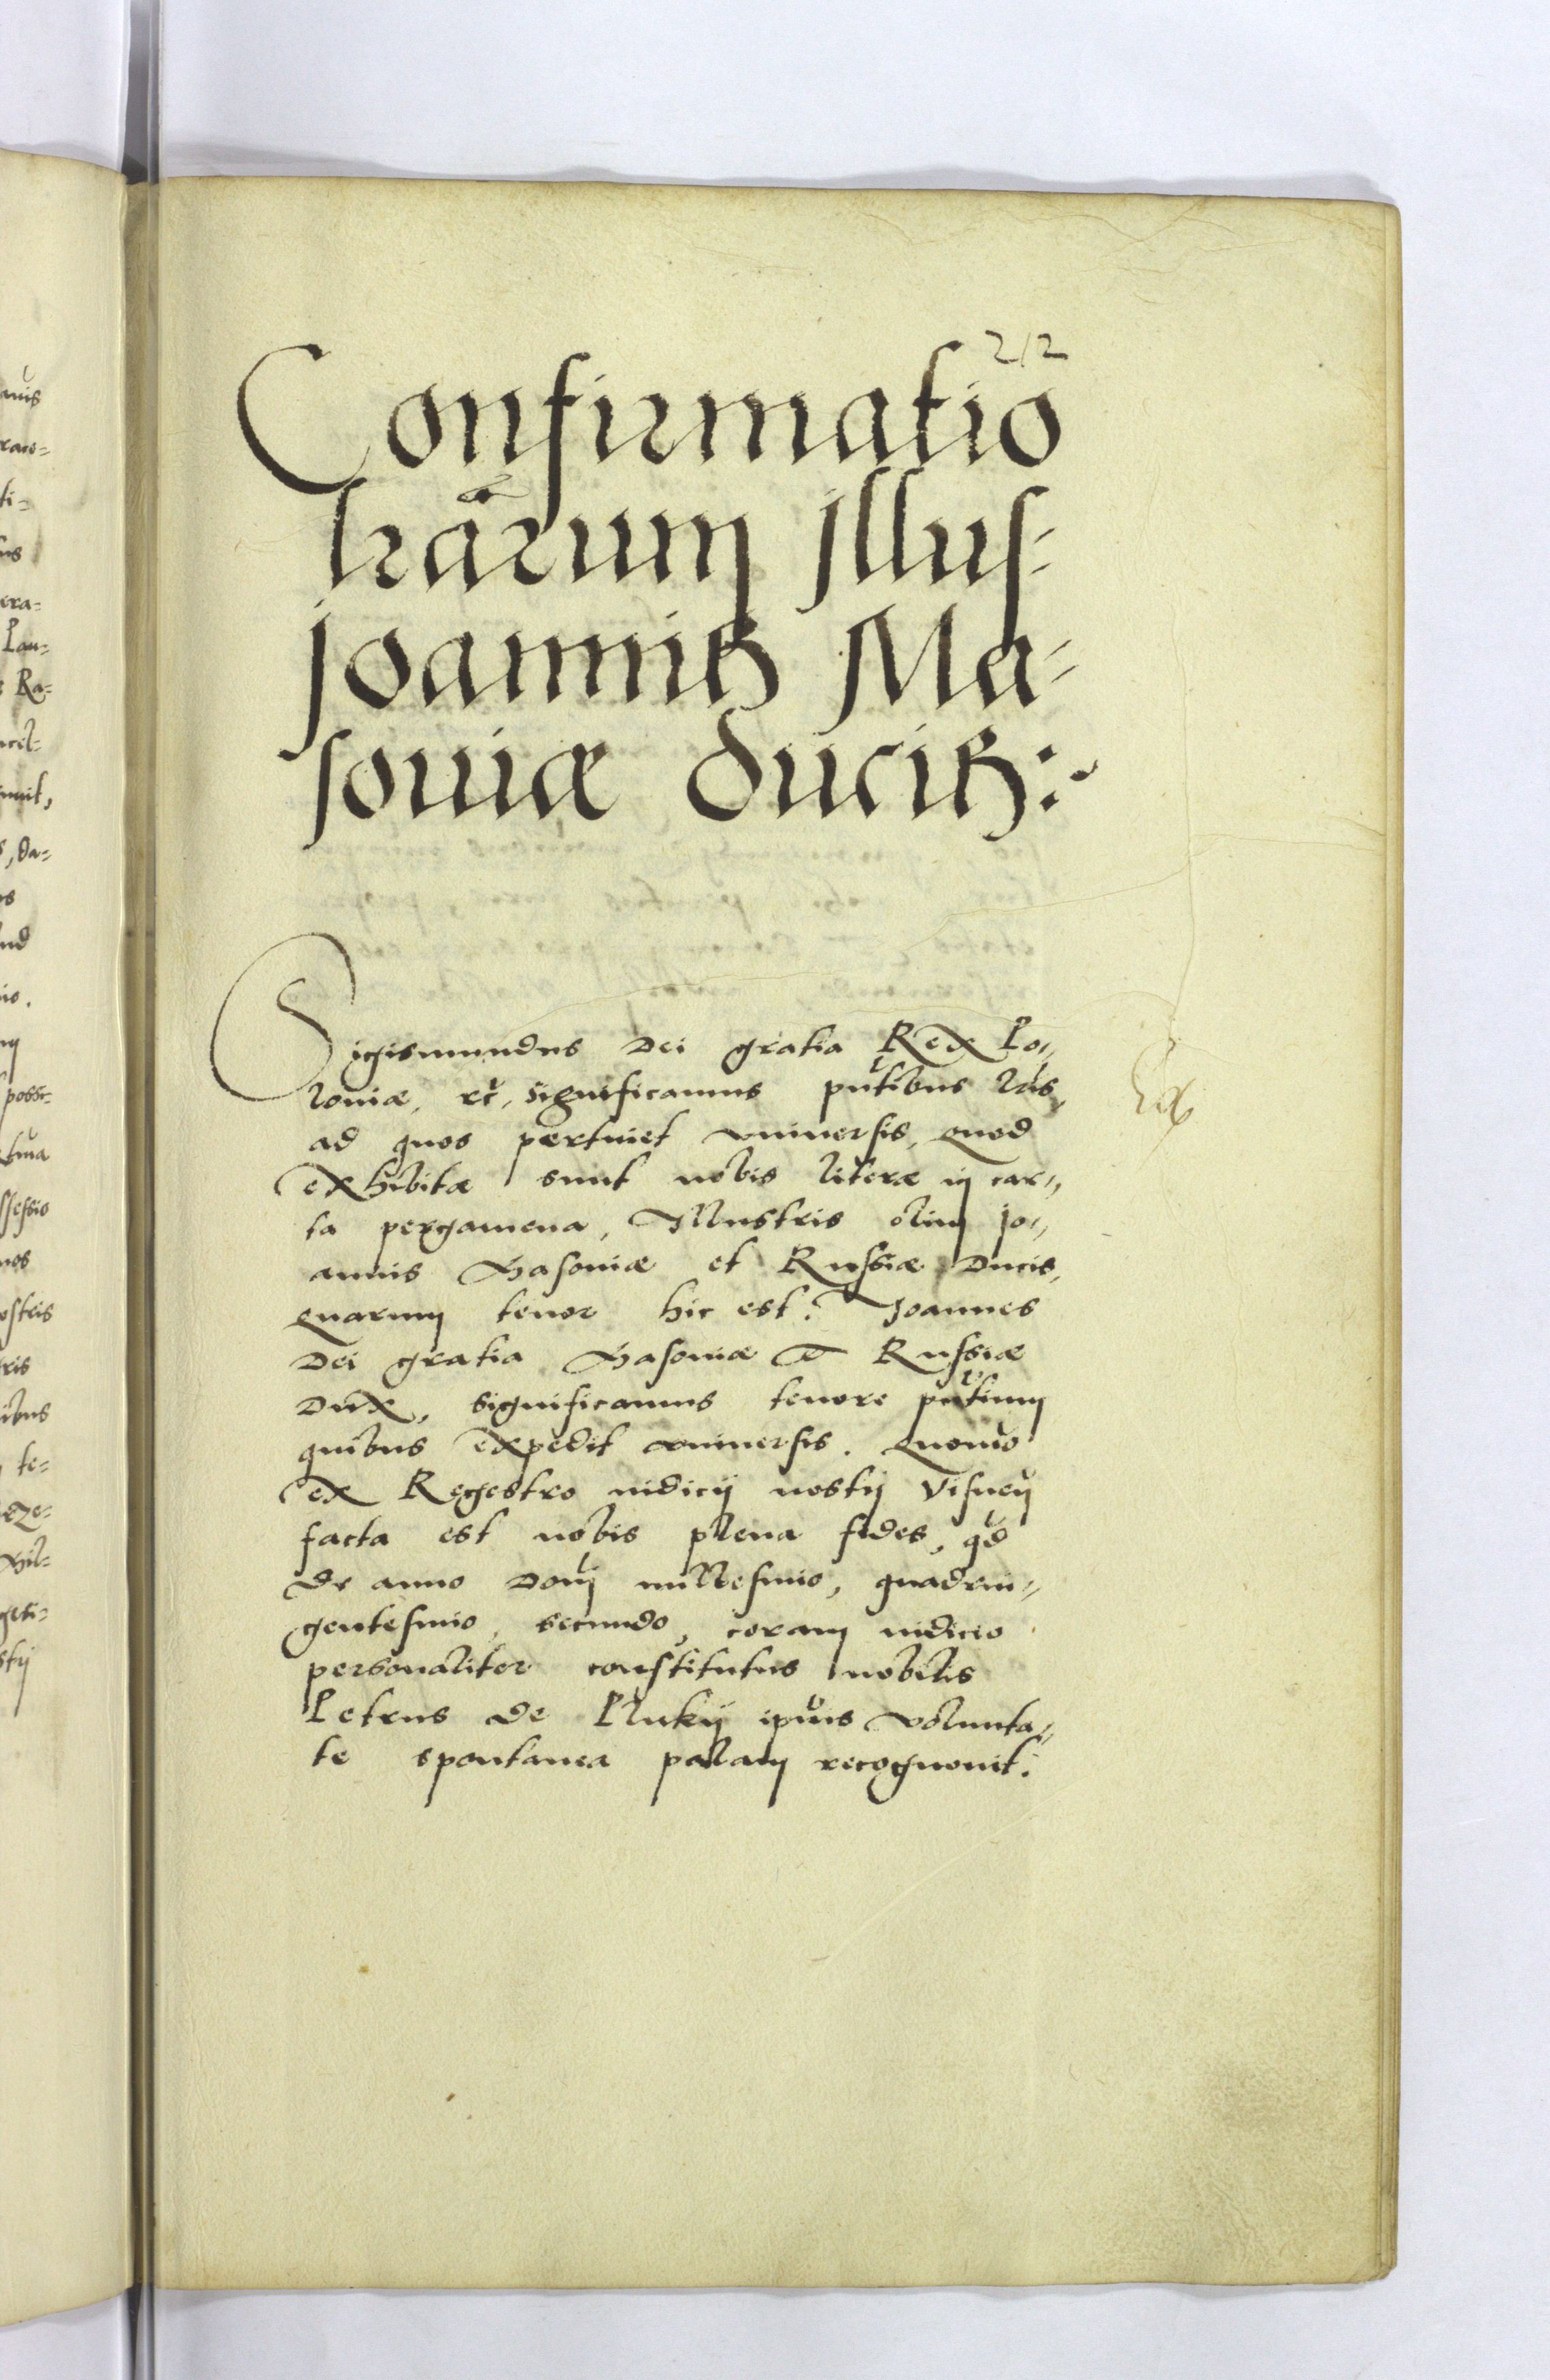 212
Confirmatio
lrarum Illus-
Joannis Ma-
soviæ Ducis:
Sigismundus Dei gratia Rex Po-
loniæ, etc̃, Significamus pñtibus lr̃is,
ad quos pertinet universis, Quod
exhibitæ sunt nobis literæ in car-
ta pergamena, Illustris olim Jo-
annis Masoviæ et Russiæ Ducis,
quarum tenor hic est. Joannes
Dei gratia Masoviæ et Russiæ
Dux, significamus tenore pñtium
quibus expedit universis. Quomo
ex Regestro iudicij nostrj
facta est nobis plena fides, qd̃
de anno Domj millesimo, quadrin-
gentesimo, secundo, coram iudicio
personaliter constitutus nobilis
Petrus de Plukij ipius volunta-
te spontanea palam recognovit.
avis
ti-
era-
Lau-
Ra-
, da-
possr-
ssessio
nos
ostris
ibus
te-
eze-